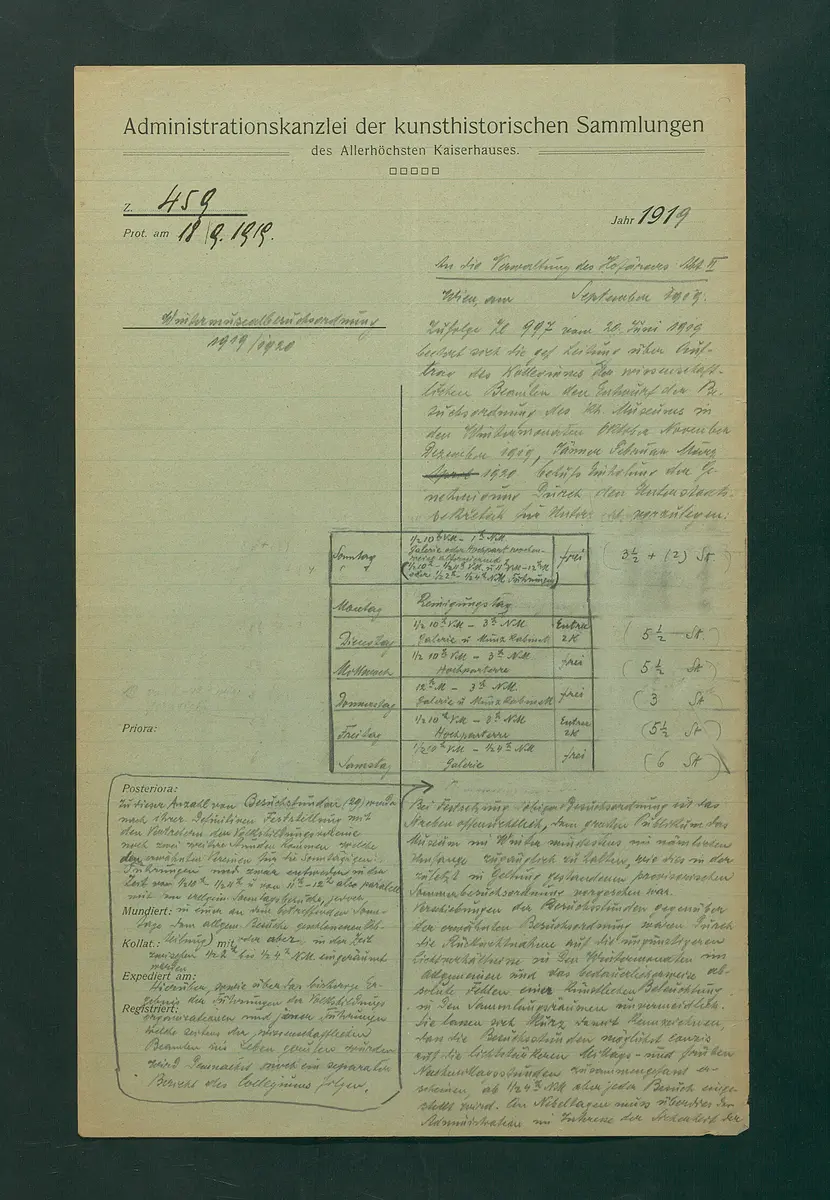 Administrationskanzlei der kunsthistorischen Sammlungen
des Allerhöchsten Kaiserhauses.
Z. 459
Jahr 1919
Prot. am 18/9. 1919.
An die Verwaltung des Hofärars Abt II
Wien, am September 1919.
Wintermusealbesuchsordnung
1919/1920
Zufolge Zl 997 vom 20. Juni 1919
beehrt sich die gef Leitung über Auf-
trag des Kollegiums der wissenschaft-
lichen Beamten den Entwurf der Be-
suchsordnung des kh. Museums in
den Wintermonaten Oktober November
Dezember 1919, Jänner Februar März
April 1920 behufs Einholung der Ge-
nehmigung durch den Unterstaats-
sekretär für Unterr. vorzulegen:
Sonntag
½ 10h VM – 1h NM
Galerie oder Hochparterre wochen-
weise alternierend
oder ½2h – ½4h NM Führungen)
frei
(3½ + (2) St.)
Montag
Reinigungstag
Dienstag
½ 10h VM – 3h NM
Galerie u Münzkabinett
Entree
2K
(5½ St.)
Mittwoch
½ 10h VM – 3h NM
Hochparterre
frei
(5½ St)
Donnerstag
12h M – 3h NM
Galerie u Münzkabinett
frei
(3 St)
Freitag
½10h VM – 3h NM
Hochparterre
Entree
2K
(5½ St)
Samstag
½10h VM – ½4h NM
Galerie
frei
(6 St)
Priora:
Posteriora:
Zu dieser Anzahl von Besuchsstunden (29) würden
nach ihrer definitiven Feststellung mit
den Vertretern der Volksbildungsvereine
noch zwei weitere Stunden kommen welche
den erwähnten Vereinen für die Sonntägigen
Führungen und zwar entweder in der
Zeit von ½10h – ½11h u von 11h – 12h also parallel
mit dem allgem Sonntagsbesuche, jedoch
Mundiert:
in einer an dem betreffenden Sonn-
tage dem allgem Besuche geschlossenen Ab-
teilung) oder aber in der Zeit
Kollat.:
zwischen ½2h bis ½4h NM eingeräumt
werden
Expediert am:
Hierüber, sowie über das bisherige Er-
gebnis der Führungen der Volksbildungs
Registriert:
organisationen und jener Führungen
welche seitens der wissenschaftlichen
Beamten ins Leben gerufen wurden
wird demnächst noch ein separater
Bericht des Collegiums folgen.
Bei Festsetzung obiger Besuchsordnung ist das
Streben offensichtlich, dem großen Publikum das
Museum im Winter mindestens im nämlichen
Umfange zugänglich zu halten, wie dies in der
zuletzt in Geltung gestandenen provisorischen
Sommerbesuchsordnung vorgesehen war.
Verschiebungen der Besuchsstunden gegenüber
der erwähnten Besuchsordnung waren durch
die Rücksichtnahme auf die ungünstigeren
Lichtverhältnisse in den Wintermonaten im
allgemeinen und das bedauerlicherweise ab-
solute Fehlen einer künstlichen Beleuchtung
in den Sammlungsräumen unvermeidlich.
Sie lassen sich kurz damit kennzeichnen,
dass die Besuchsstunden möglichst
auf die lichtstärkeren Mittags- und frühen
Nachmittagsstunden zusammengefasst er-
scheinen, ab ½4h NM aber jeder Besuch einge-
stellt wird. An Nebeltagen muss überdies der
Administration im Interesse der Sicherheit der